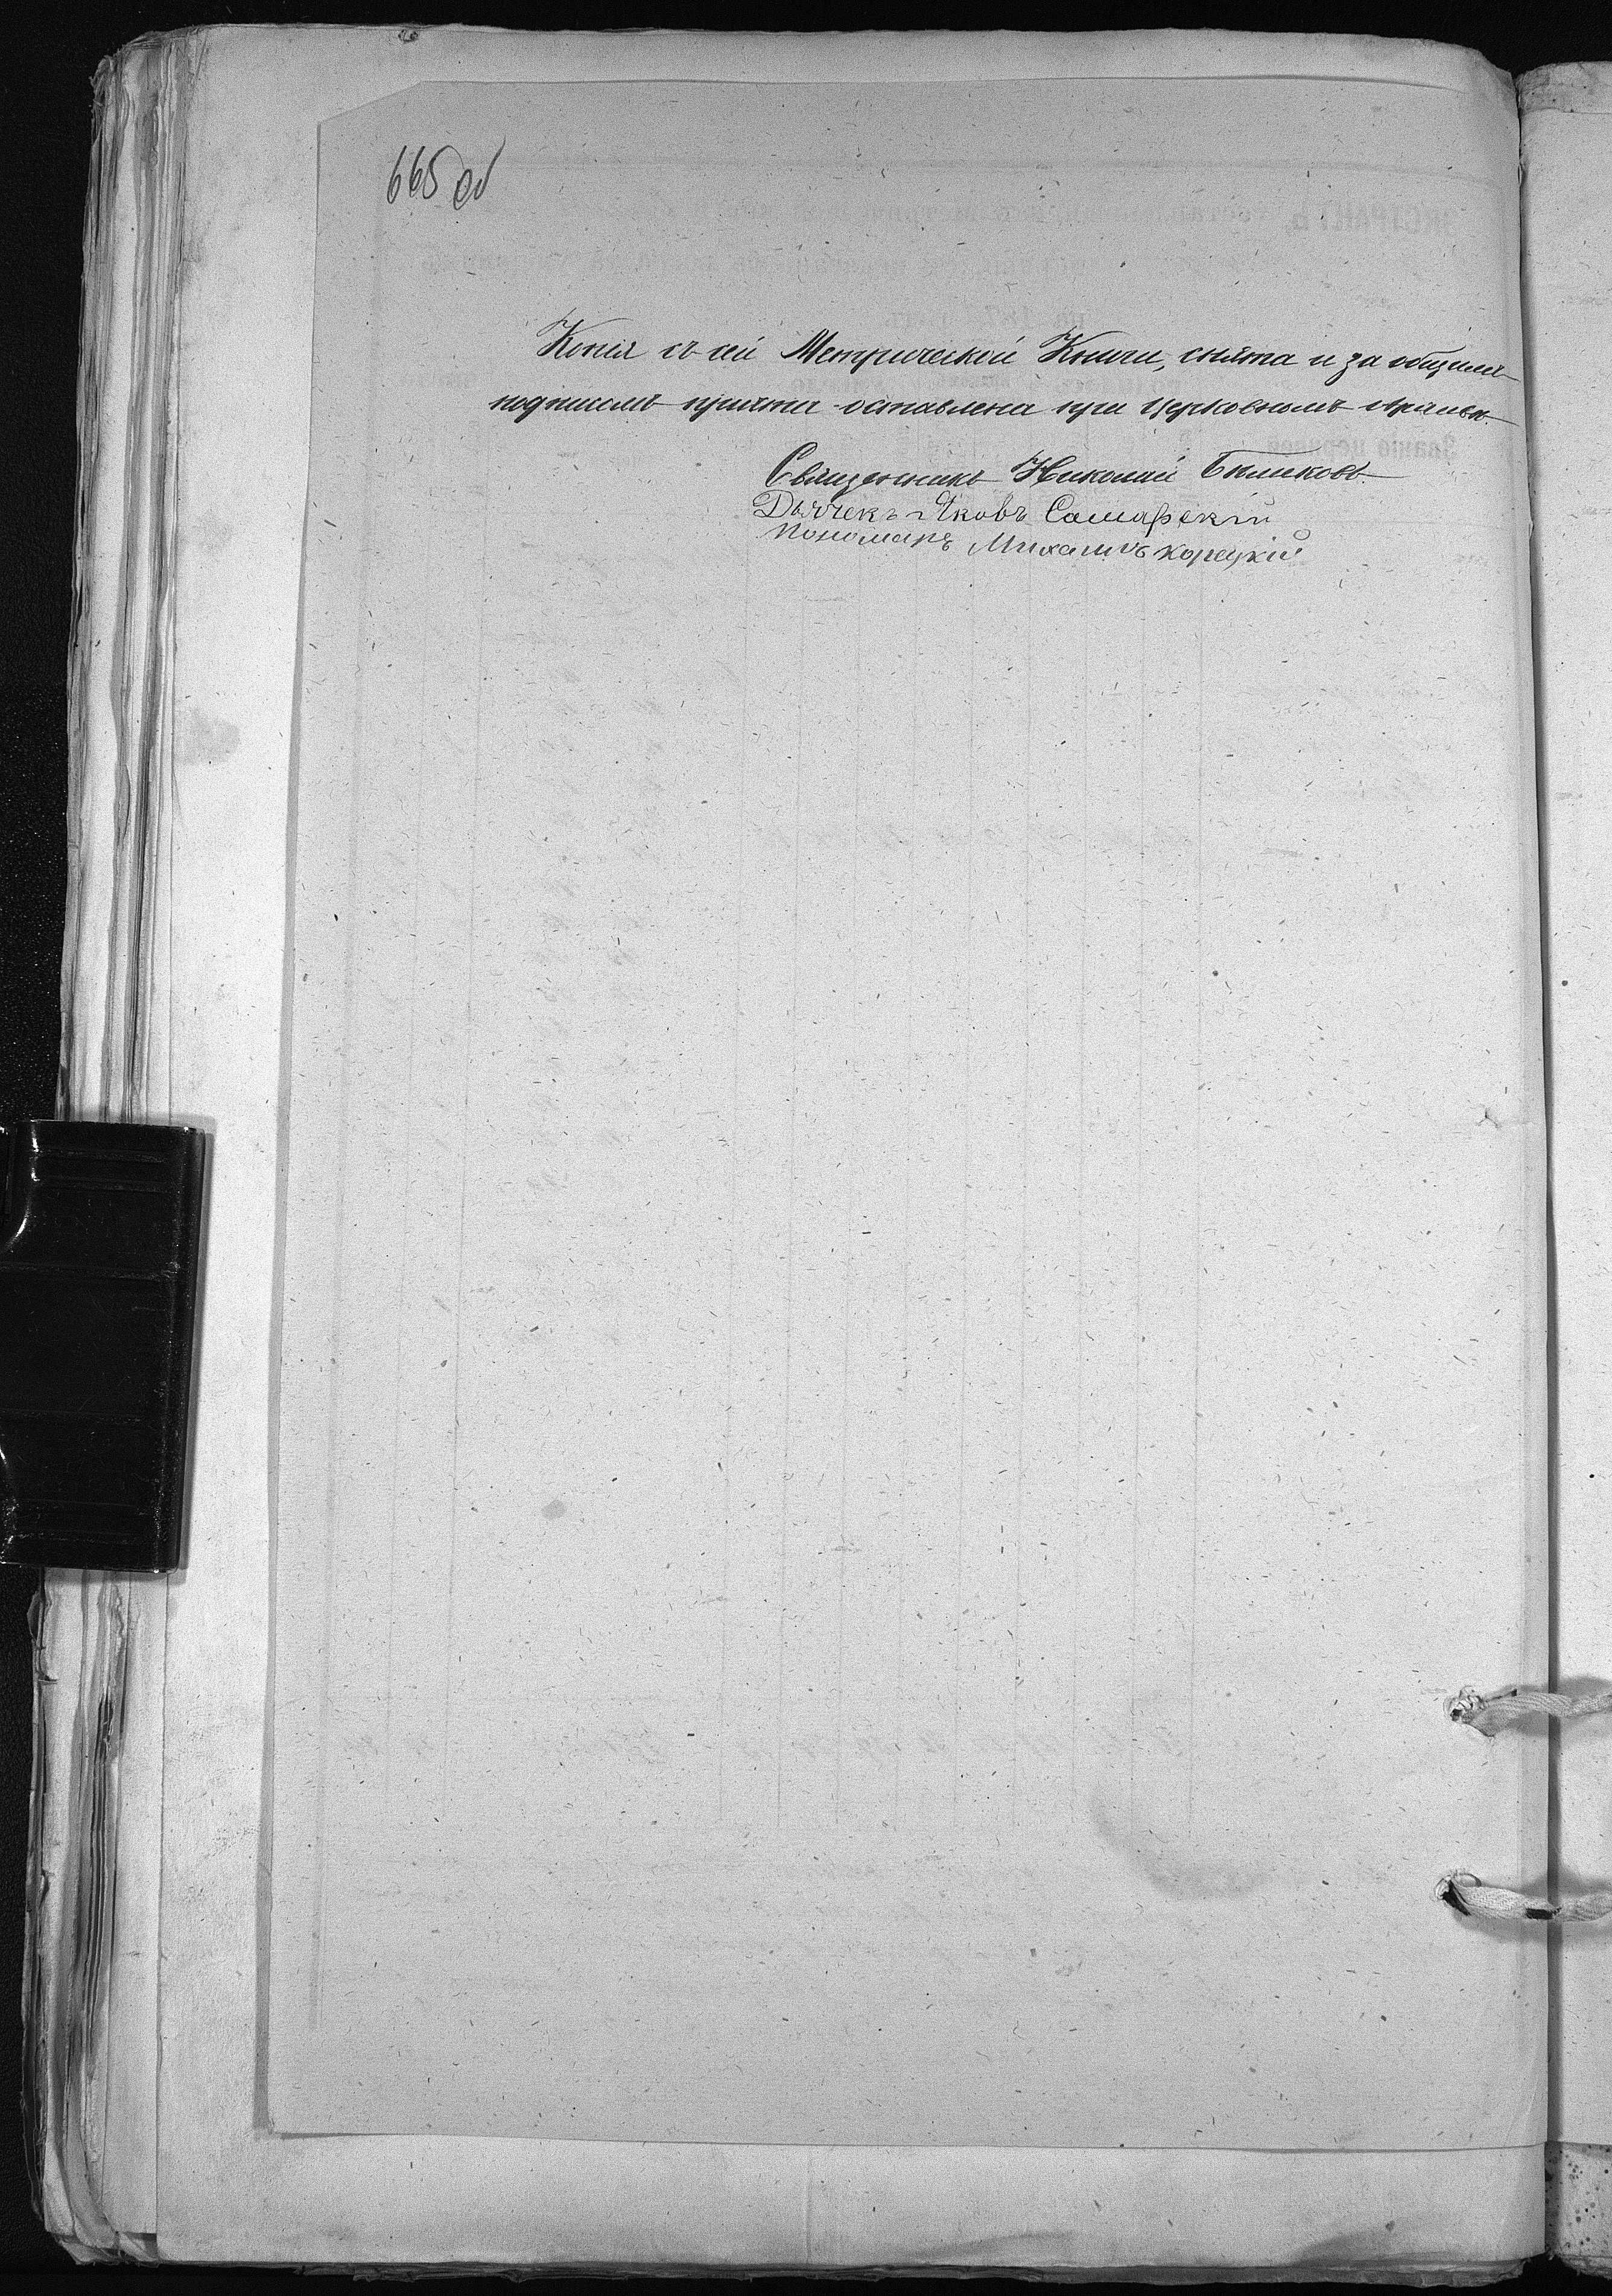 665 об
Копія съ сей Метрической Книги, снята и за общимъ
подписомъ причта оставлена при Церковномъ Архивѣ.
Священникъ Николай Быликовъ.
Дьячекъ Яковъ Самарскій
Пономарь Михаилъ Корецкій